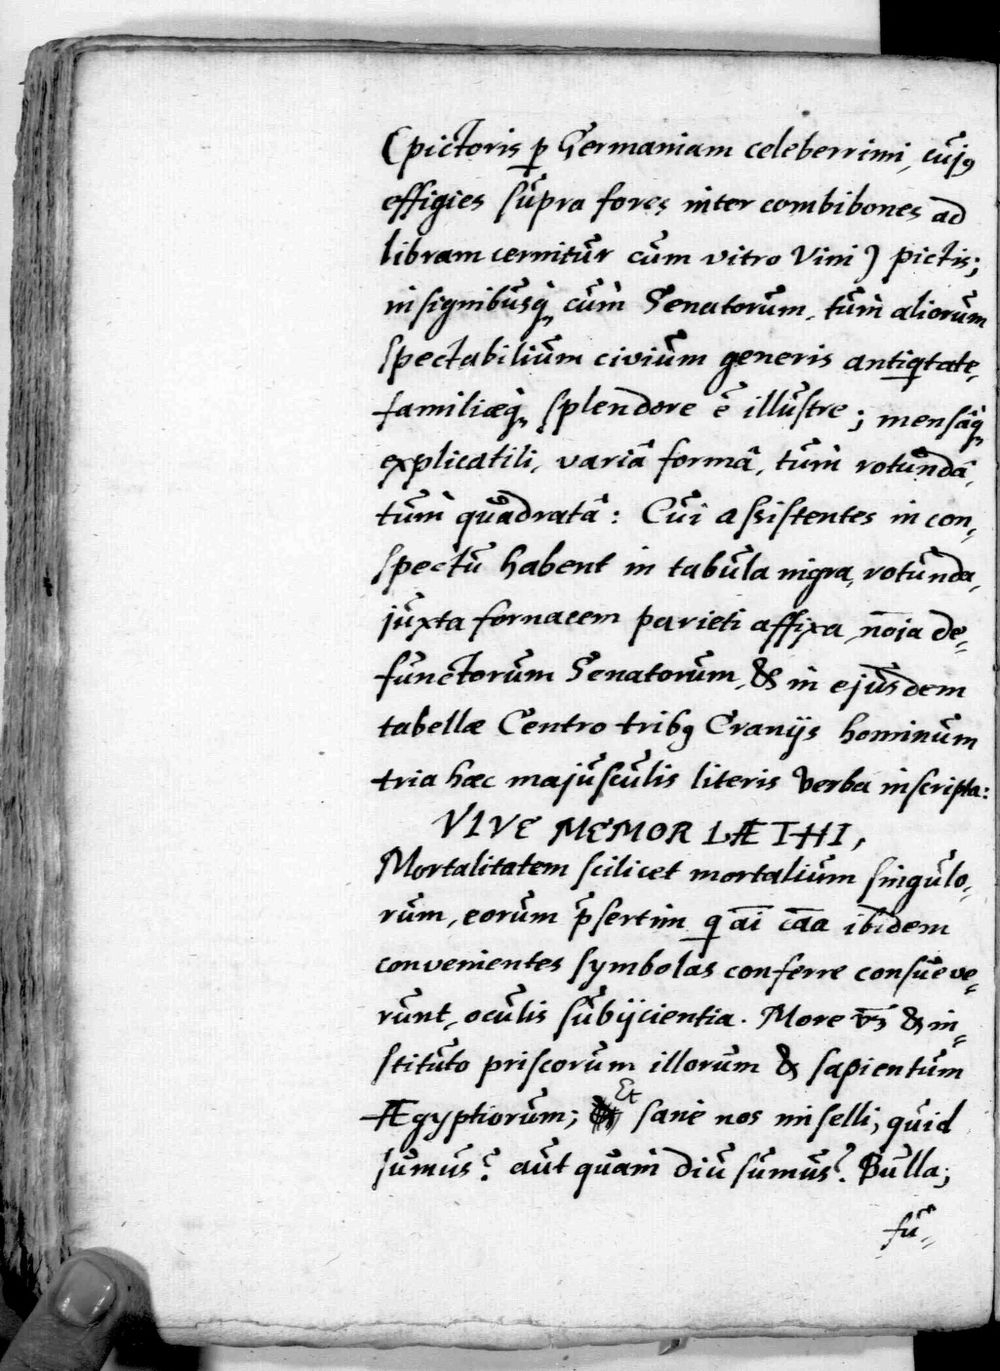 (pictoris p Germaniam celeberrimi, cuj9
effigies supra fores inter combibones ad
libram cernitur cum vitro Vini) pictis;
insignibusq, cùm Senatorum, tùm aliorum
spectabilium civium generis antiqtate,
familiæq, splendore ê illustre; mensâq,
explicatili, variâ formâ, tùm rotundâ,
tùm quadratâ: Cui assistentes in con,
spectu habent in tabula nigra, rotunda,
juxta fornacem parieti affixa, nōia de=
functorum Senatorum, & in ejusdem
tabellæ Centro trib9 Cranijs hominum
tria hæc majusculis literis verba inscripta:
VIVE MEMOR LÆTHI,
Mortalitatem scilicet mortalium singulo,
rum, eorum p̃sertim q āi cāa ibidem
convenientes symbolas conferre consueve=
runt, oculis subijcientia. More v̄s & in=
stituto priscorum illorum & sapientum
Ægyptiorum; Et sanè nos miselli; quid
sumus? aut quàm diu sumus? Bulla;
fu=